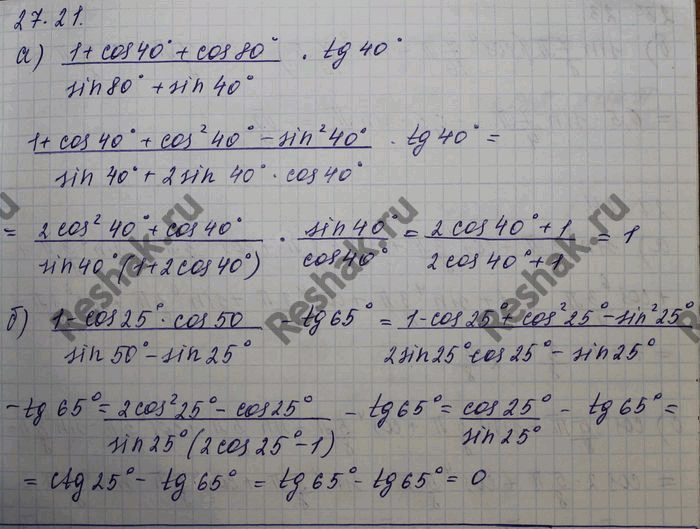 27.21.
а) (1+cos40°+cos80°)/(sin80°+sin40°) · tg40°
(1+cos40°+cos²40°-sin²40°)/(sin40°+2sin40°·cos40°) · tg40°=
= (2cos²40°+cos40°)/(sin40°(1+2cos40°)) · sin40°/cos40° = (2cos40°+1)/(2cos40°+1) = 1
б) (1-cos25°·cos50)/(sin50°-sin25°) - tg65° = (1-cos25°+cos²25°-sin²25°)/(2sin25°cos25°-sin25°)
-tg65°= (2cos²25°-cos25°)/(sin25°(2cos25°-1)) - tg65°= cos25°/sin25° - tg65°=
= ctg25°- tg65° = tg65°-tg65°= 0
Reshak.ru
Reshak.ru
Reshak.ru
.ru